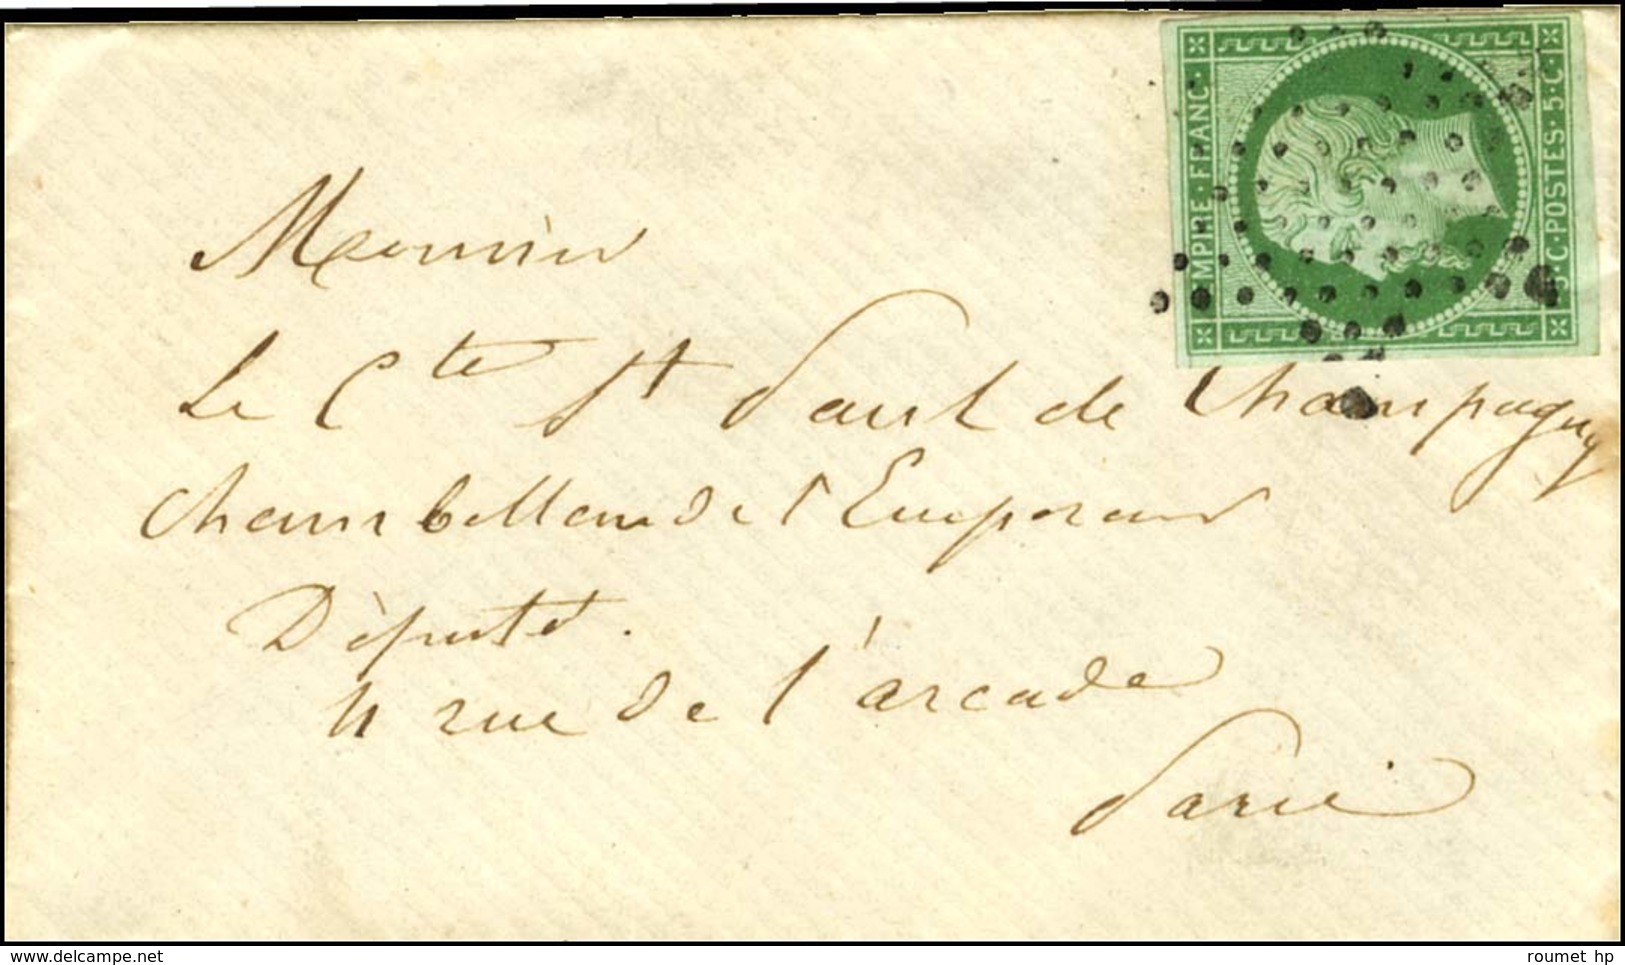 EMPIRE · FRANC ·
5 · C · POSTES · 5 · C ·
Monsieur
Le Cte St Paul de Champagny
Chambellan de l'Empereur
Député.
4 rue de l'arcade
Paris
www.delcampe.net
roumet hp